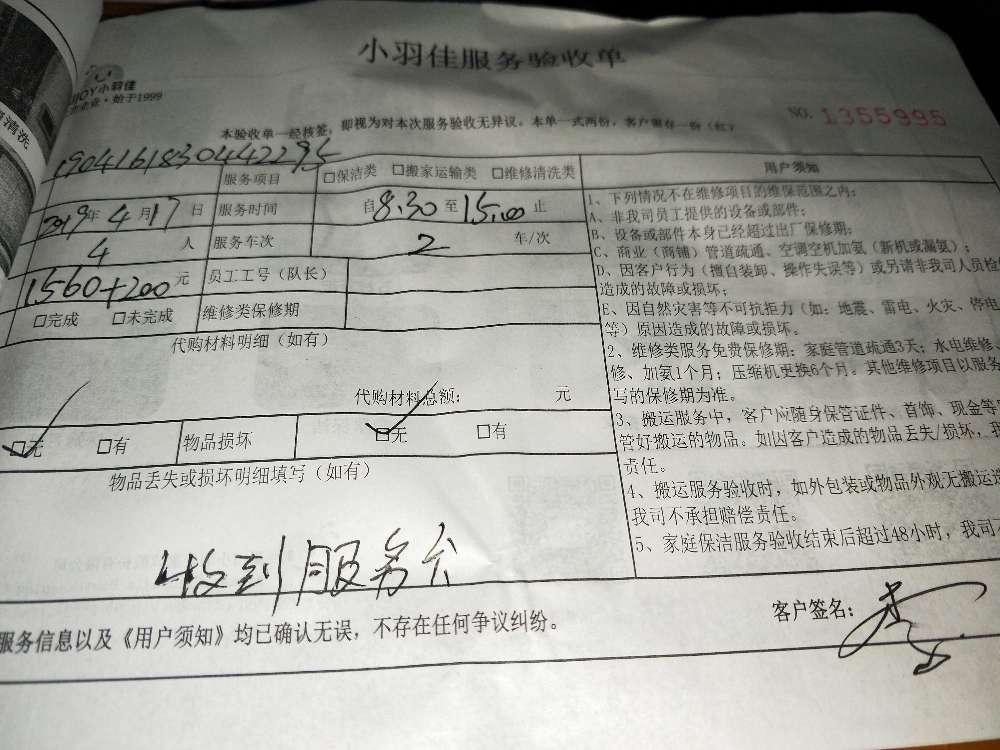 小羽佳服务验收单
JOY小羽佳
始于1999
清洗
NO. 1355995
本验收单一经核签，即视为对本次服务验收无异议。本单一式两份，客户留存一份（红）
1904161830442295
服务项目 □保洁类 □搬家运输类 □维修清洗类
用户须知
2019年4月17日 服务时间 自8:30至15:00止
4人 服务车次 2 车/次
1560+200元 员工工号（队长）
□完成 □未完成 维修类保修期
代购材料明细（如有）
代购材料总额： 元
□无 □有 物品损坏 □无 □有
物品丢失或损坏明细填写（如有）
收到服务
1、下列情况不在维修项目的维保范围之内：
A、非我司员工提供的设备或部件；
B、设备或部件本身已经超过出厂保修期；
C、商业（商铺）管道疏通、空调空机加氨（新机或漏氨）；
D、因客户行为（擅自装卸、操作失误等）或另请非我司人员检
造成的故障或损坏；
E、因自然灾害等不可抗拒力（如：地震、雷电、火灾、停电
等）原因造成的故障或损坏。
2、维修类服务免费保修期：家庭管道疏通3天；水电维修、
修、加氨1个月；压缩机更换6个月。其他维修项目以服务
写的保修期为准。
3、搬运服务中，客户应随身保管证件、首饰、现金等
管好搬运的物品。如因客户造成的物品丢失/损坏，我
责任。
4、搬运服务验收时，如外包装或物品外观无搬运造
我司不承担赔偿责任。
5、家庭保洁服务验收结束后超过48小时，我司不
服务信息以及《用户须知》均已确认无误，不存在任何争议纠纷。
客户签名：